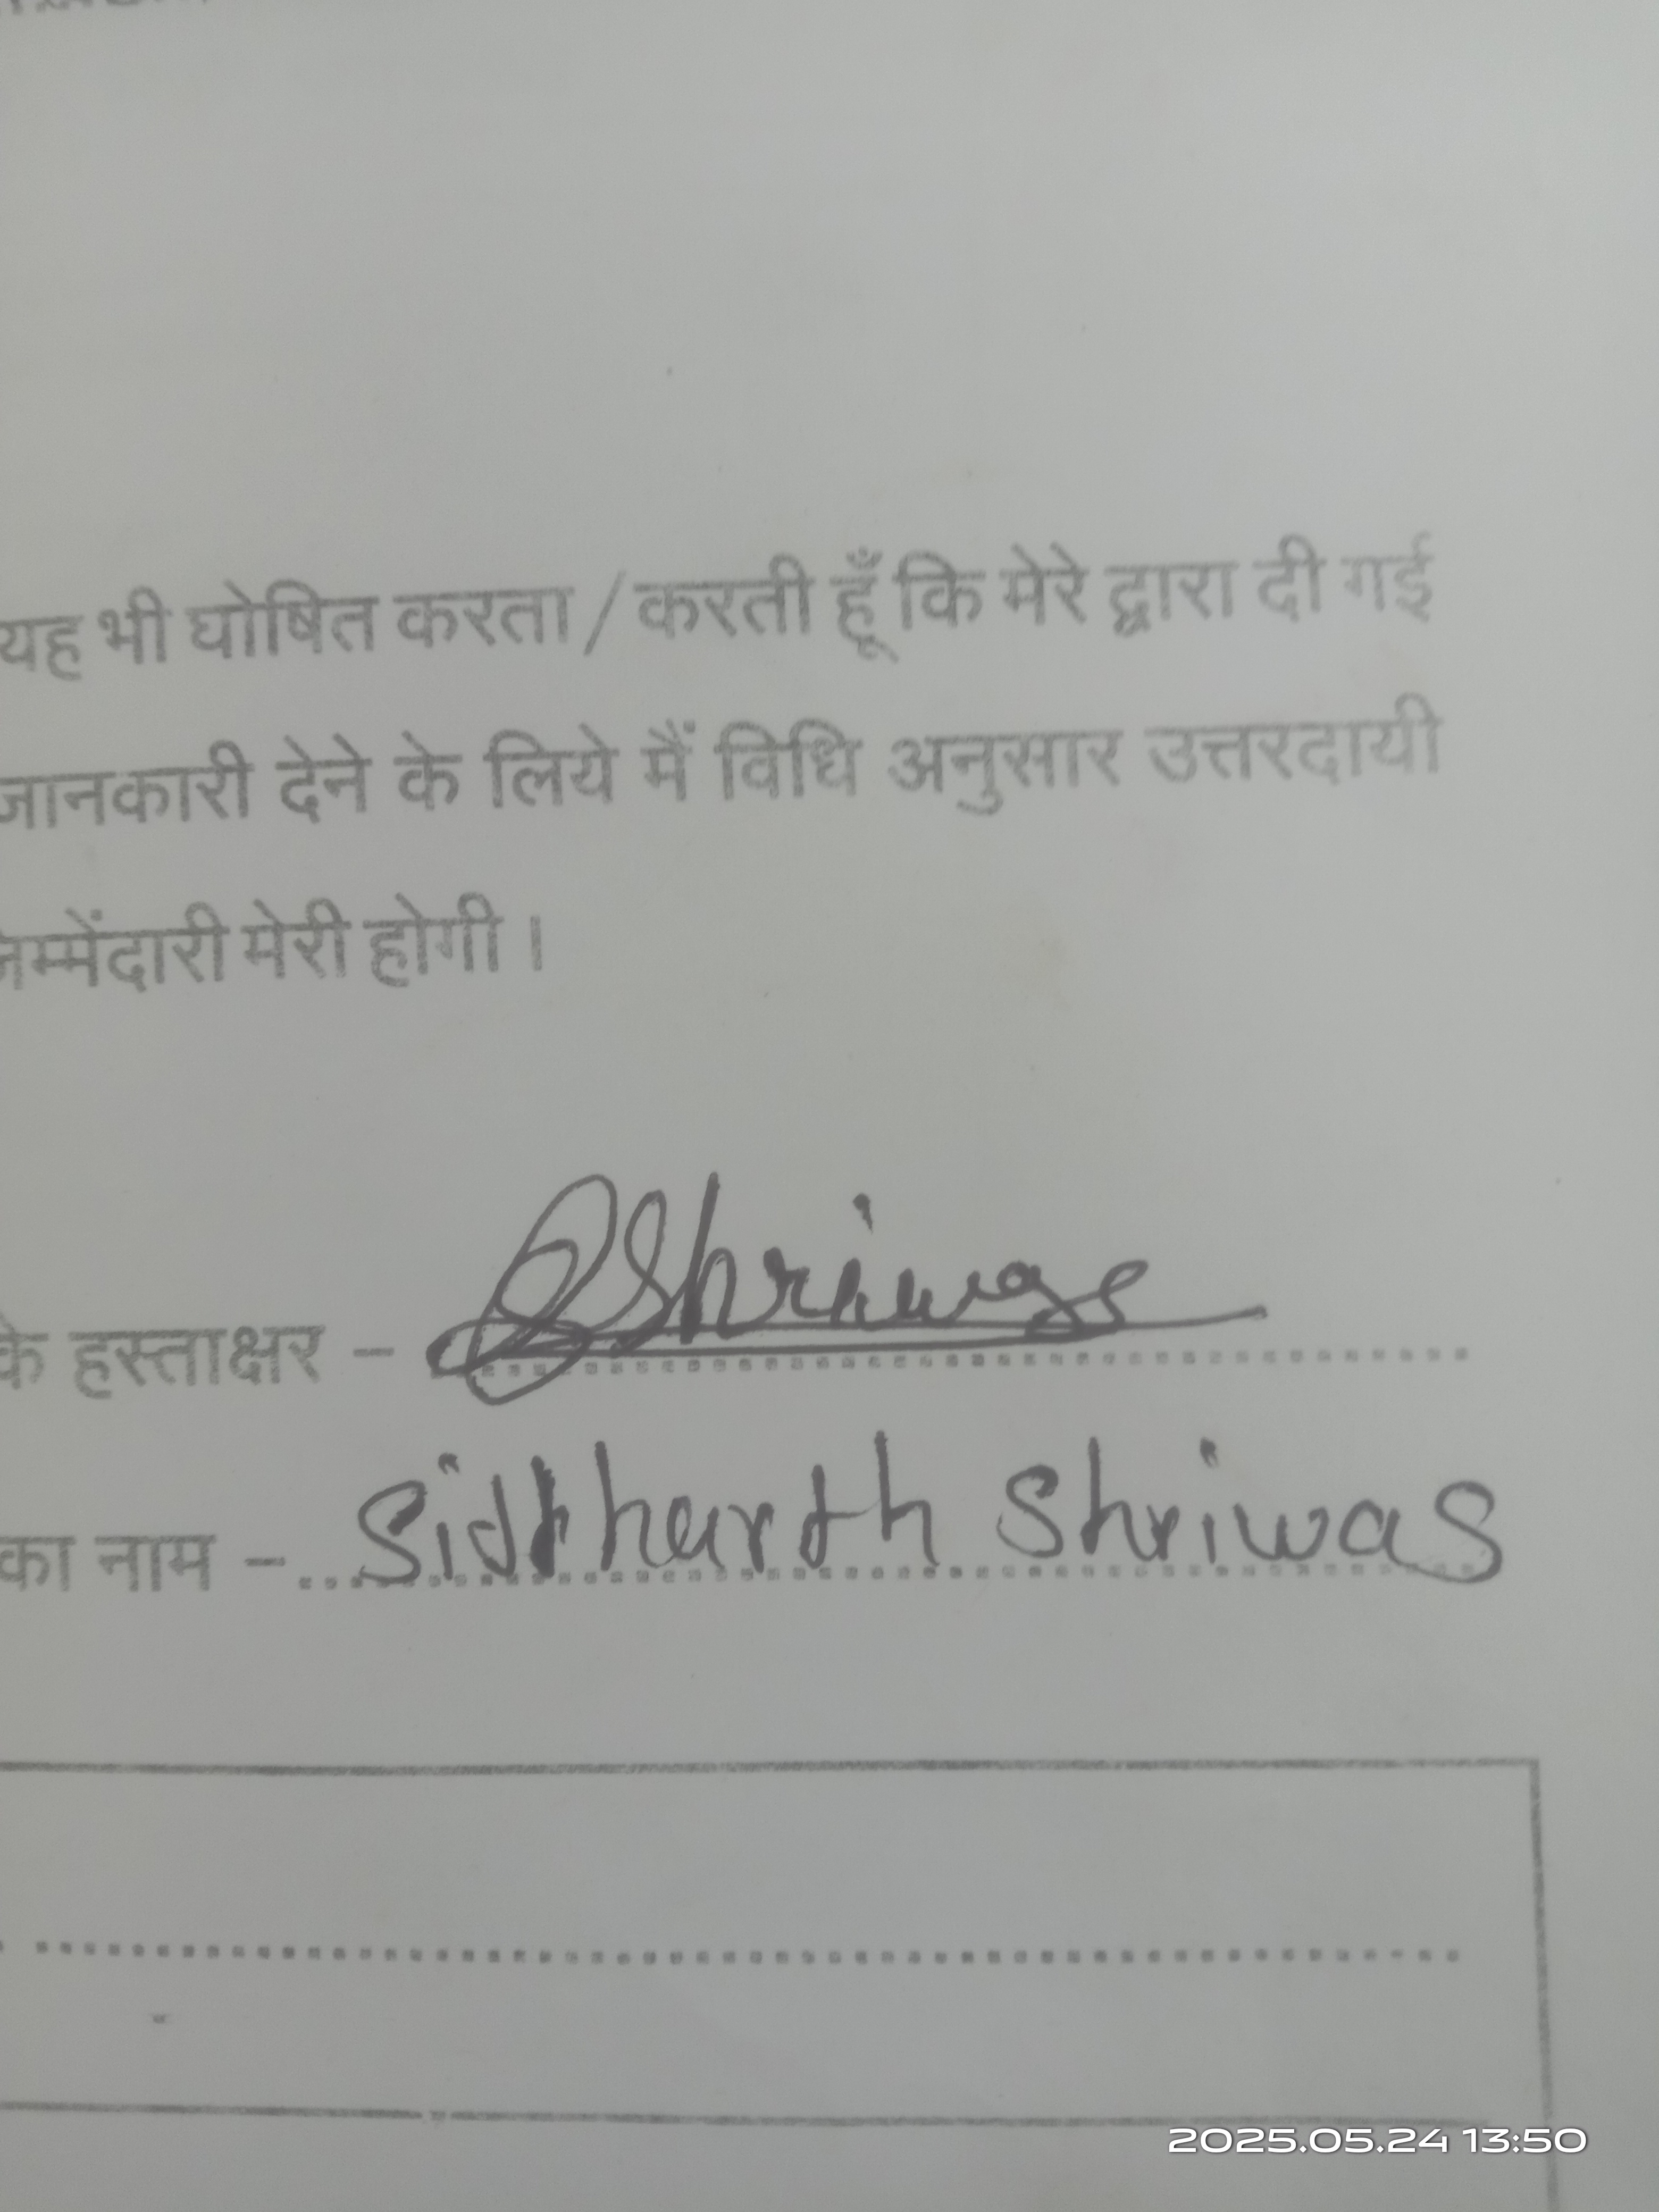 यह भी घोषित करता / करती हूँ कि मेरे द्वारा दी गई
जानकारी देने के लिये मैं विधि अनुसार उत्तरदायी
जिम्मेंदारी मेरी होगी ।
के हस्ताक्षर - Shriwas
का नाम - Siddharth Shriwas
2025.05.24 13:50